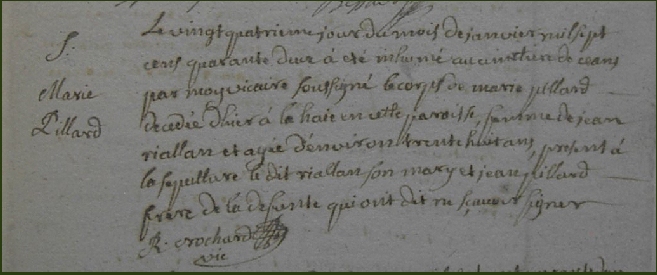 S.
Marie
Pillard
Le vingt quatrieme jour du mois de janvier mil sept
cens quarante deux á eté inhumé au cimetiere de ceans
par moy vicaire soussigné le corps de marie pillard
decedée d'hier á la haie en cette paroisse, femme de jean
riallan et agée d'environ trente huit ans, present á
la sepulture le dit riallan son mary et jean pillard
frere de la defunte qui ont dit ne sçavoir signer
R. crochard
vic